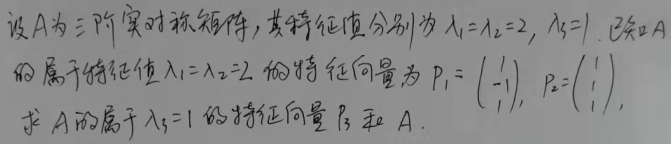 设A为三阶实对称矩阵,其特征值分别为 λ₁=λ₂=2, λ₃=1. 已知A
的属于特征值 λ₁=λ₂=2 的特征向量为 P₁=(1 -1 1), P₂=(1 1 1),
求 A的属于 λ₃=1 的特征向量 P₃ 和 A.